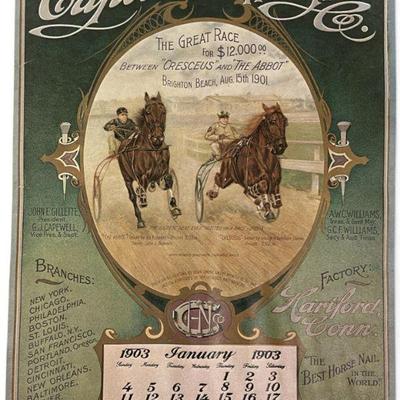 Co.
THE GREAT RACE
FOR $12,000.00
BETWEEN "CRESCEUS" AND "THE ABBOT"
BRIGHTON BEACH, AUG. 15th 1901.
JOHN E. GILLETTE,
President
G.J. CAPEWELL,
Vice Pres. & Supt.
A.W.C. WILLIAMS,
Treas. & Genl. Mgr.
G.C.F. WILLIAMS,
Secy & Asst Treas.
BRANCHES:
NEW YORK,
CHICAGO,
PHILADELPHIA,
BOSTON,
ST. LOUIS,
BUFFALO, N.Y.
SAN FRANCISCO,
PORTLAND, OREGON
DETROIT,
CINCINNATI,
NEW ORLEANS,
BALTIMORE,
FACTORY:
Hartford
Conn.
"THE
BEST HORSE NAIL
IN THE
WORLD."
1903 January 1903
Sunday Monday Tuesday Wednesday Thursday Friday Saturday
1 2 3
4 5 6 7 8 9 10
11 12 13 14 15 16 17